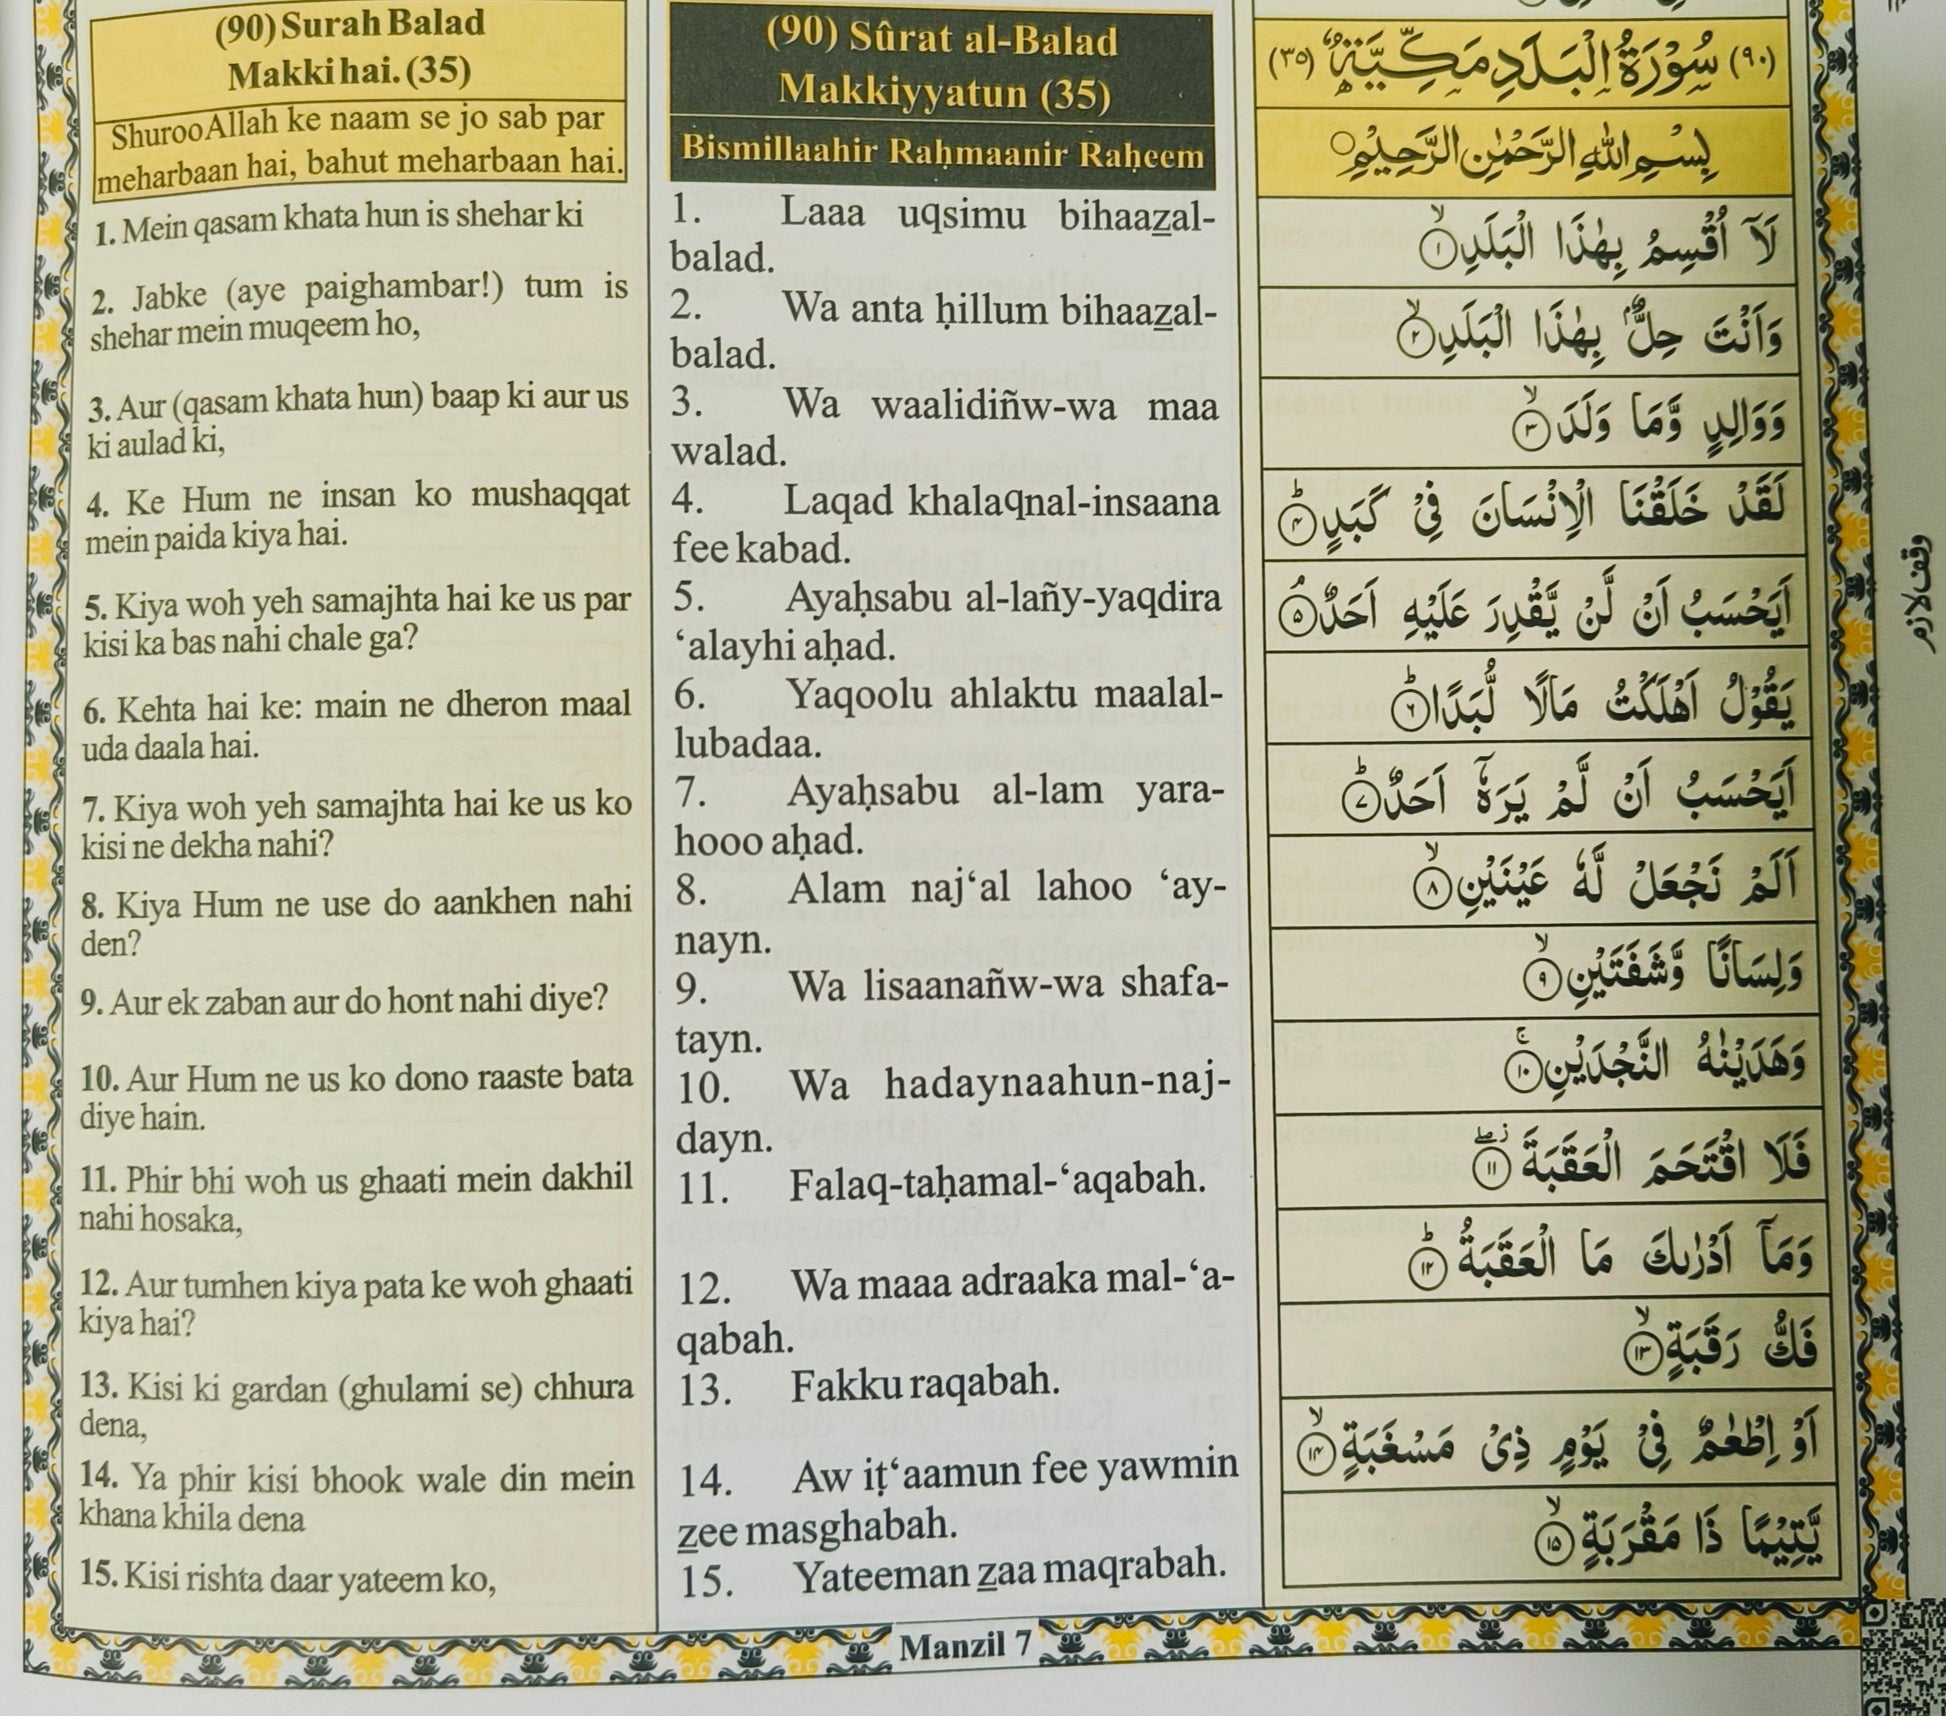 (90) Surah Balad
Makki hai. (35)
Shuroo Allah ke naam se jo sab par
meharbaan hai, bahut meharbaan hai.
1. Mein qasam khata hun is shehar ki
2. Jabke (aye paighambar!) tum is
shehar mein muqeem ho,
3. Aur (qasam khata hun) baap ki aur us
ki aulad ki,
4. Ke Hum ne insan ko mushaqqat
mein paida kiya hai.
5. Kiya woh yeh samajhta hai ke us par
kisi ka bas nahi chale ga?
6. Kehta hai ke: main ne dheron maal
uda daala hai.
7. Kiya woh yeh samajhta hai ke us ko
kisi ne dekha nahi?
8. Kiya Hum ne use do aankhen nahi
den?
9. Aur ek zaban aur do hont nahi diye?
10. Aur Hum ne us ko dono raaste bata
diye hain.
11. Phir bhi woh us ghaati mein dakhil
nahi hosaka,
12. Aur tumhen kiya pata ke woh ghaati
kiya hai?
13. Kisi ki gardan (ghulami se) chhura
dena,
14. Ya phir kisi bhook wale din mein
khana khila dena
15. Kisi rishta daar yateem ko,
(90) Sûrat al-Balad
Makkiyyatun (35)
Bismillaahir Raḥmaanir Raḥeem
1. Laaa uqsimu bihaazal-
balad.
2. Wa anta ḥillum bihaazal-
balad.
3. Wa waalidiñw-wa maa
walad.
4. Laqad khalaqnal-insaana
fee kabad.
5. Ayaḥsabu al-lañy-yaqdira
‘alayhi aḥad.
6. Yaqoolu ahlaktu maalal-
lubadaa.
7. Ayaḥsabu al-lam yara-
hooo aḥad.
8. Alam naj‘al lahoo ‘ay-
nayn.
9. Wa lisaanañw-wa shafa-
tayn.
10. Wa hadaynaahun-naj-
dayn.
11. Falaq-taḥamal-‘aqabah.
12. Wa maaa adraaka mal-‘a-
qabah.
13. Fakku raqabah.
14. Aw iṭ‘aamun fee yawmin
zee masghabah.
15. Yateeman zaa maqrabah.
(٩٠) سُوْرَةُ الْبَلَدِ مَكِّيَّةٌ (٣٥)
بِسْمِ اللّٰهِ الرَّحْمٰنِ الرَّحِيْمِ
لَآ اُقْسِمُ بِهٰذَا الْبَلَدِ ۙ‏ ١
وَاَنْتَ حِلٌّۢ بِهٰذَا الْبَلَدِ ۙ‏ ٢
وَوَالِدٍ وَّمَا وَلَدَ ۙ‏ ٣
لَقَدْ خَلَقْنَا الْاِنْسَانَ فِيْ كَبَدٍ ؕ‏ ٤
اَيَحْسَبُ اَنْ لَّنْ يَّقْدِرَ عَلَيْهِ اَحَدٌ ۘ‏ ٥
يَقُوْلُ اَهْلَكْتُ مَالًا لُّبَدًا ؕ‏ ٦
اَيَحْسَبُ اَنْ لَّمْ يَرَهٗۤ اَحَدٌ ؕ‏ ٧
اَلَمْ نَجْعَلْ لَّهٗ عَيْنَيْنِ ۙ‏ ٨
وَلِسَانًا وَّشَفَتَيْنِ ۙ‏ ٩
وَهَدَيْنٰهُ النَّجْدَيْنِ ۚ‏ ١٠
فَلَا اقْتَحَمَ الْعَقَبَةَ ۖ‏ ١١
وَمَآ اَدْرٰىكَ مَا الْعَقَبَةُ ؕ‏ ١٢
فَكُّ رَقَبَةٍ ۙ‏ ١٣
اَوْ اِطْعٰمٌ فِيْ يَوْمٍ ذِيْ مَسْغَبَةٍ ۙ‏ ١٤
يَّتِيْمًا ذَا مَقْرَبَةٍ ۙ‏ ١٥
وقف لازم
Manzil 7